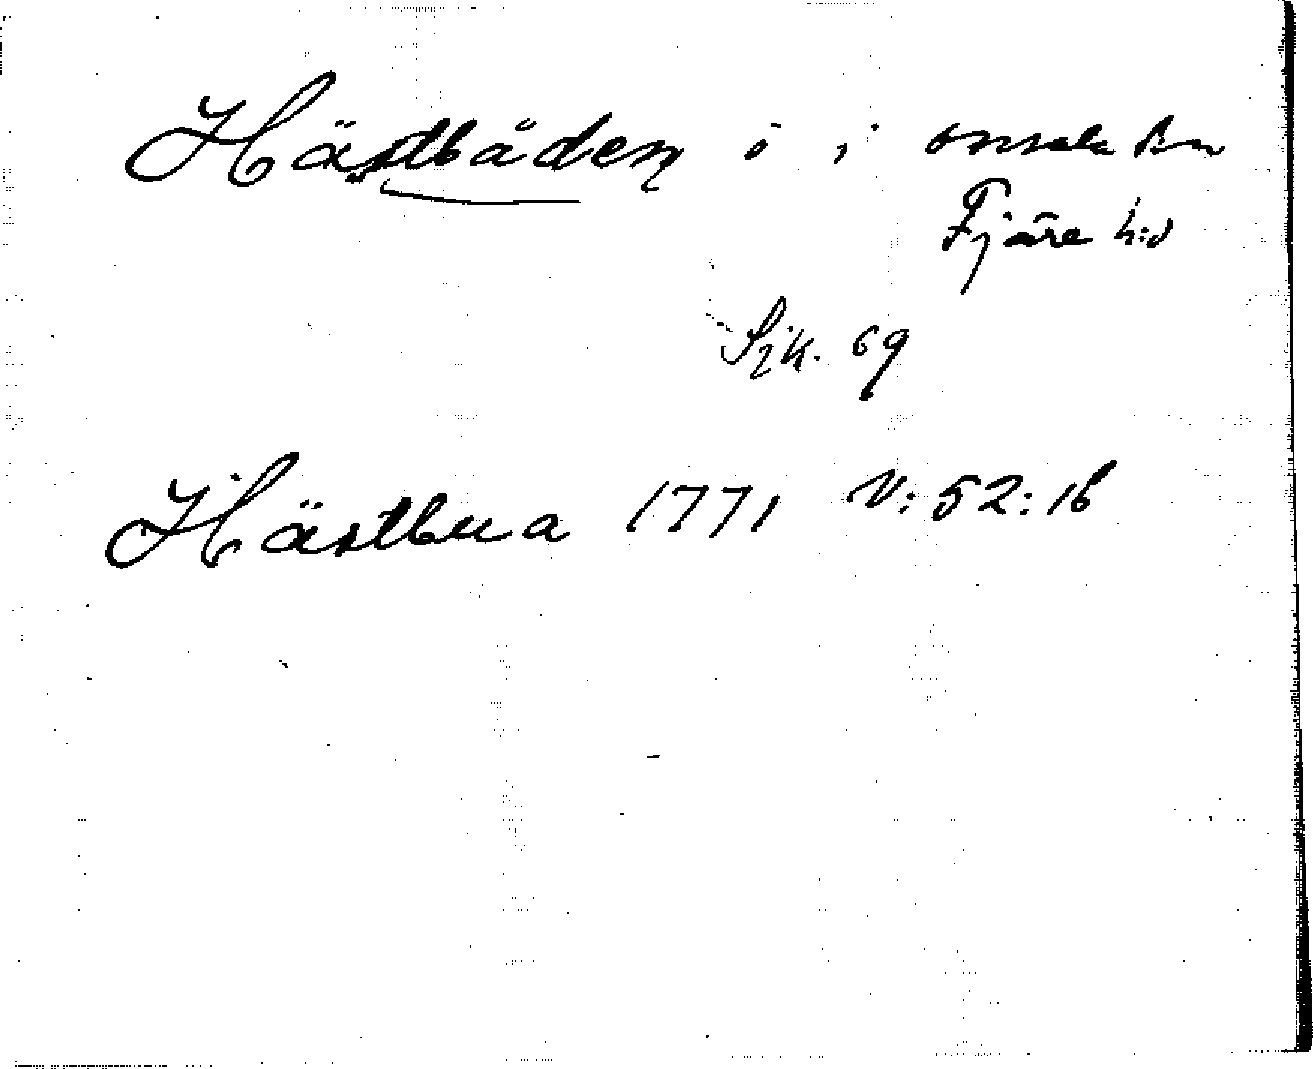 Hästbåden ö i Onsala sn
Fjäre h:d
Sjk. 69
Hästbua 1771 V:52:16